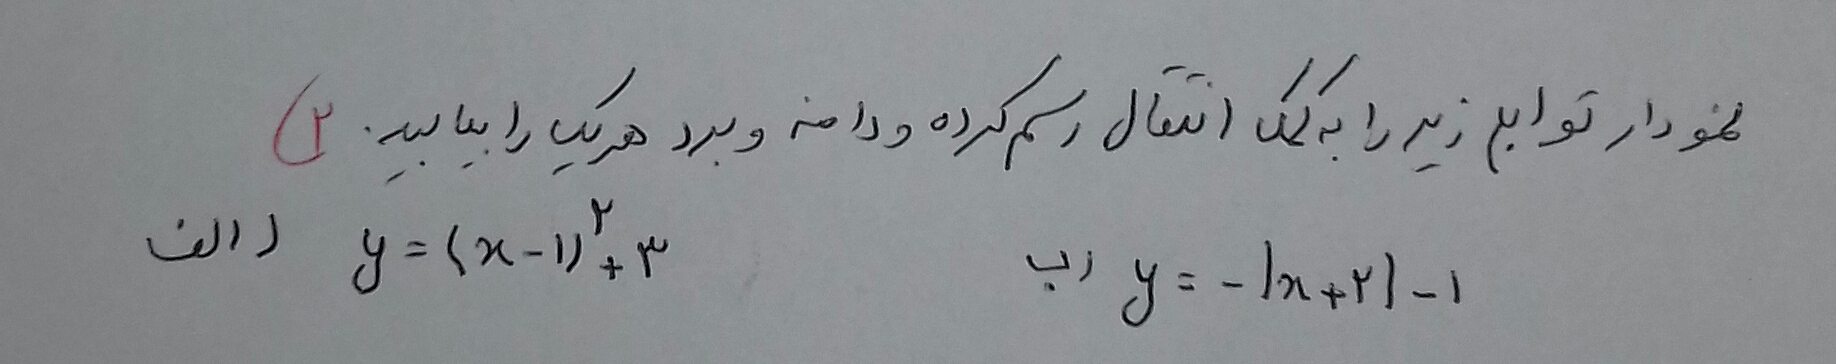 نمودار توابع زیر را به کمک انتقال رسم کرده و دامنه و برد هریک را بیابید. (۲
الف) y = (x-۱)^۲ + ۳
ب) y = -|x+۲| -۱